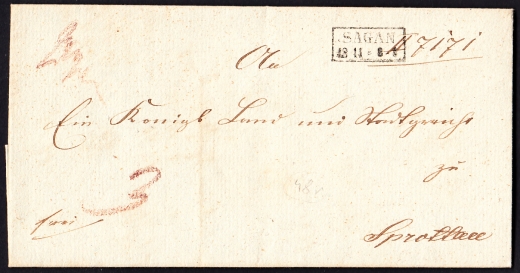 SAGAN
13 11
N 7171
An
Ein Königl Land und Stadtgericht
zu
frei
3
Sprottau